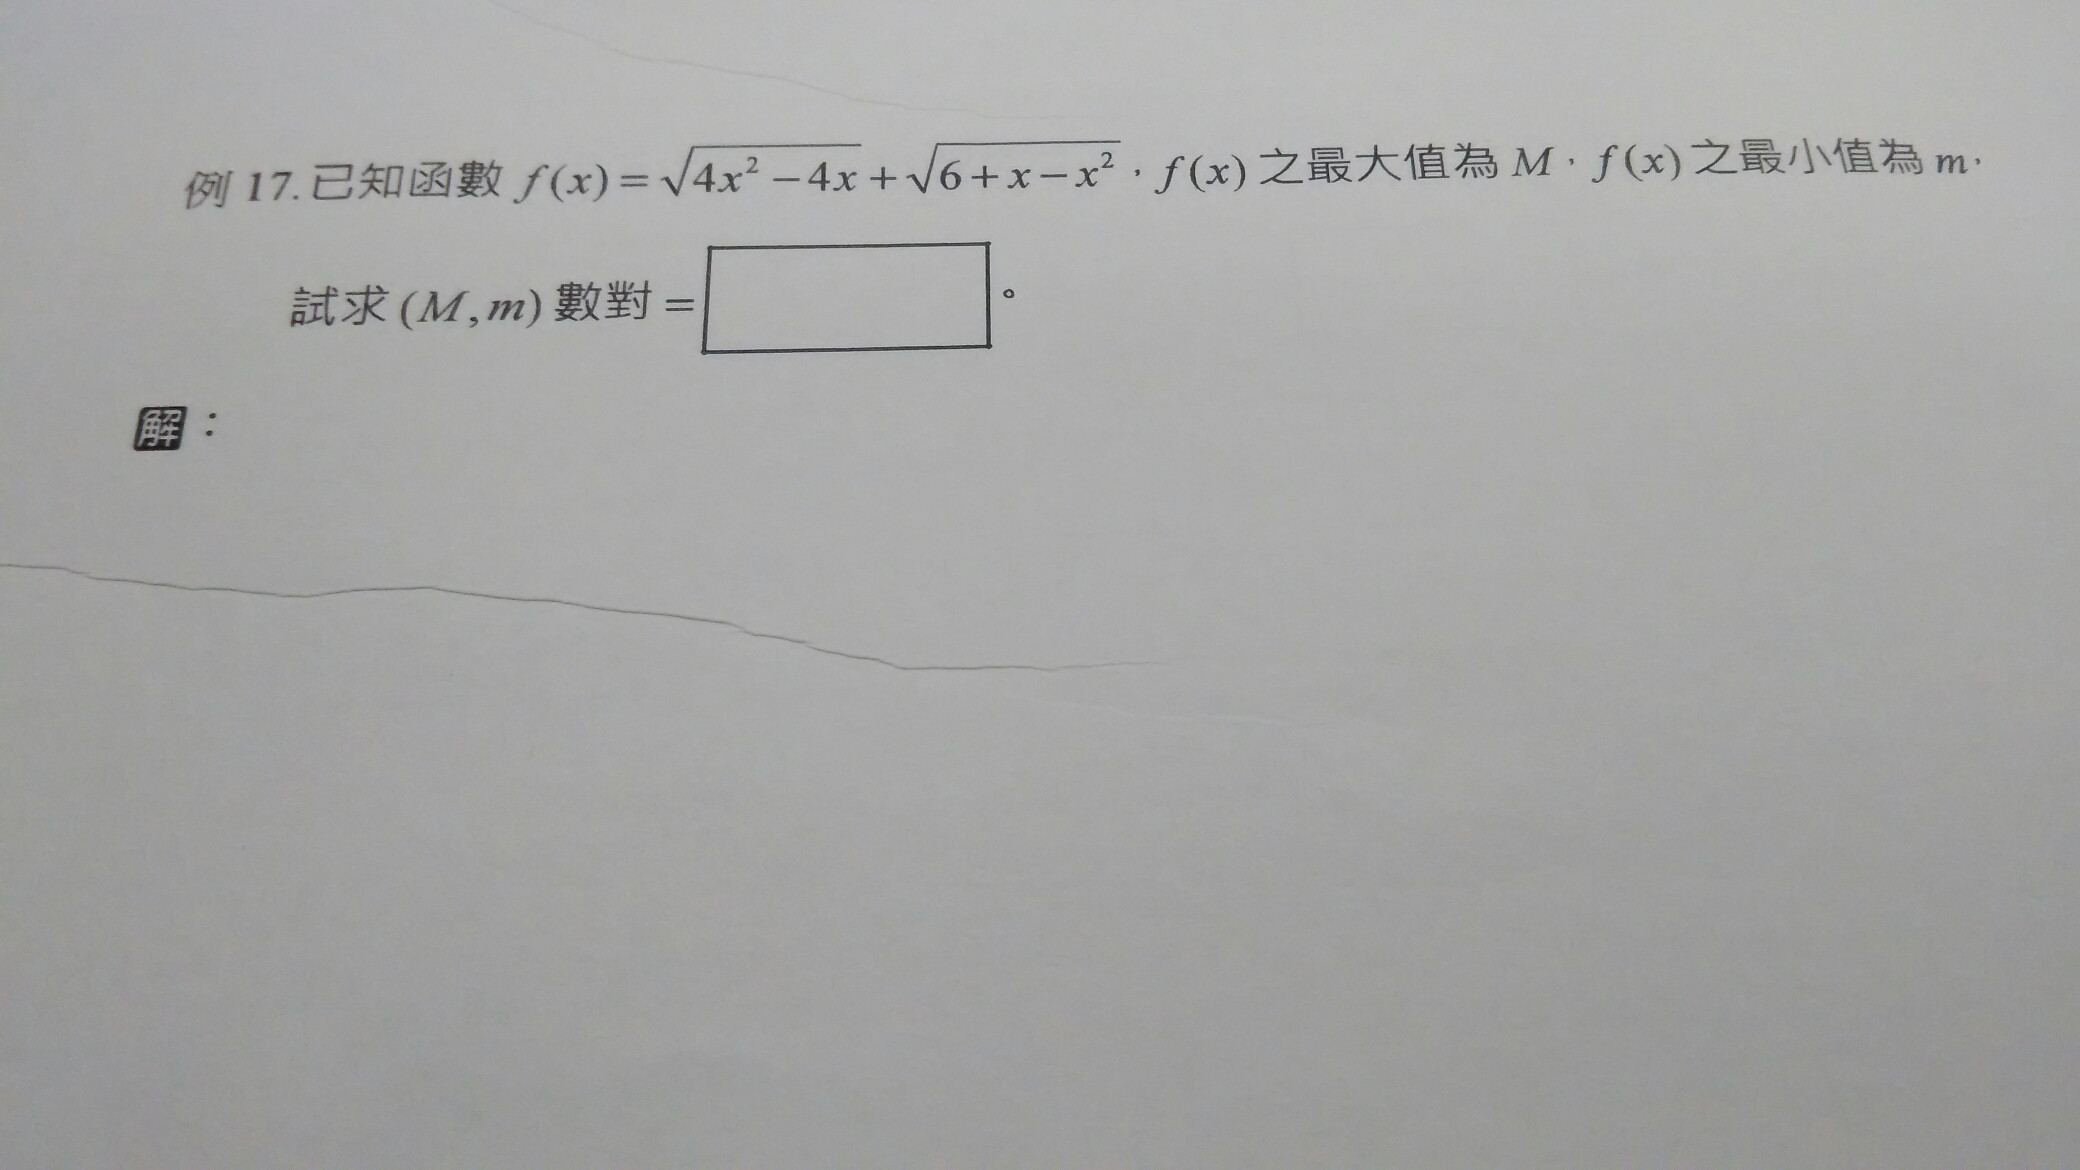 例 17. 已知函數 f(x)=√(4x²−4x)+√(6+x−x²),f(x) 之最大值為 M,f(x) 之最小值為 m,
試求 (M,m) 數對 = 。
解: